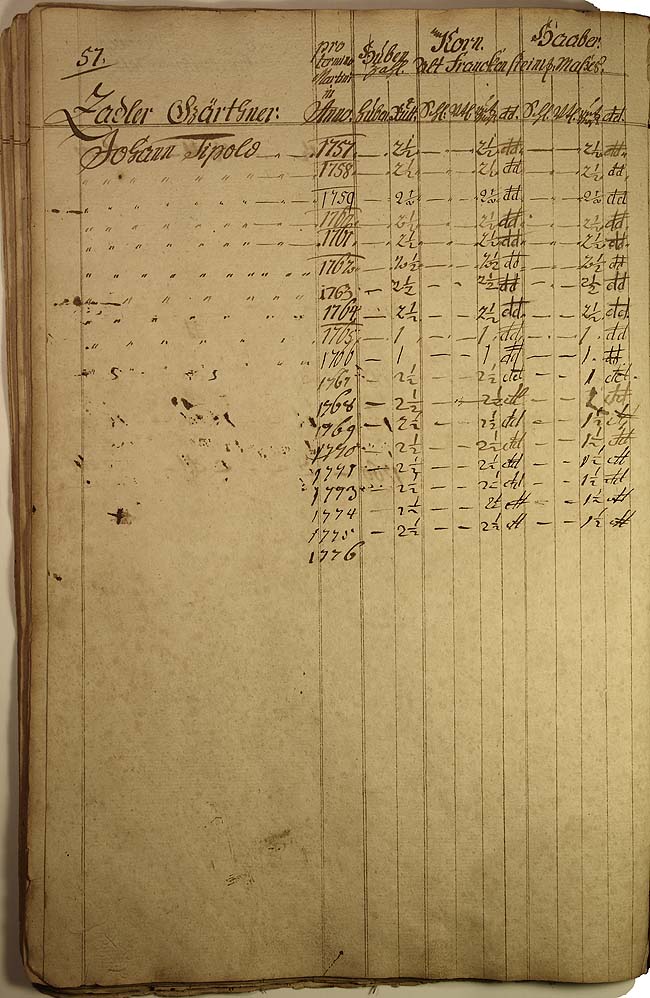 57.
pro Termino Martini in Anno. Huben Zahl. Korn. Haaber.
Alt Franckensteine. Maßes.
Zadler Gärthner: Anno. Huben
Johann Tipold 1757 - 2½ - - 2½ dd. - - 2½ dd.
1758 - 2½ - - 2½ dd - - 2½ dd.
1759 - 2½ - - 2½ dd - - 2½ dd
1760 - 2½ - - 2½ dd - - 2½ dd
1761 - 2½ - - 2½ dd - - 2½ dd
1762 - 2½ - - 2½ dd - - 2½ dd
1763 - 2½ - - 2½ dd - - 2½ dd
1764 - 2½ - - 2½ dd - - 2½ dd
1765 - 1 - - 1. dd - - 1. dd
1766 - 1 - - 1 dd - - 1. dd.
1767 - 2½ - - 2½ dd - - 1 dd.
1768 - 2½ - - 2½ dd - - dd
1769 - 2½ - - 2½ dd - - 1½ dd
1770 - 2½ - - 2½ dd - - 1½ dd
1771 - 2½ - - 2½ dd - - 1½ dd
1773 - 2½ - - 2½ dd - - 1½ dd
1774 - 2½ - - 2½ dd - - 1½ dd
1775 - 2½ - - 2½ dd - - 1½ dd
1776